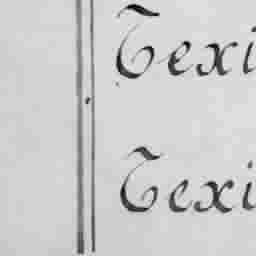 Texi
Texi